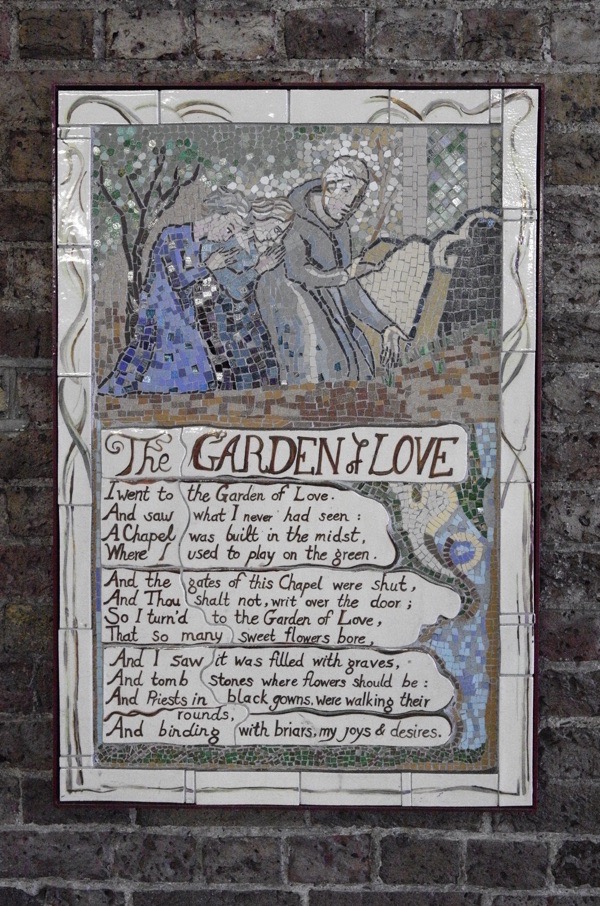 The GARDEN of LOVE
I went to the Garden of Love.
And saw what I never had seen :
A Chapel was built in the midst,
Where I used to play on the green.
And the gates of this Chapel were shut,
And Thou shalt not, writ over the door ;
So I turn'd to the Garden of Love,
That so many sweet flowers bore,
And I saw it was filled with graves,
And tomb stones where flowers should be :
And Priests in black gowns, were walking their
rounds,
And binding with briars, my joys & desires.